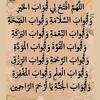 اللهم افتح لي أبواب الخير
وأبواب السلامة وأبواب الصحة
وأبواب النعمة وأبواب البركة
وأبواب القوة وأبواب المودة
وأبواب الرحمة وأبواب الرزق
وأبواب العلم وأبواب المغفرة
وأبواب الجنة يا أرحم الراحمين